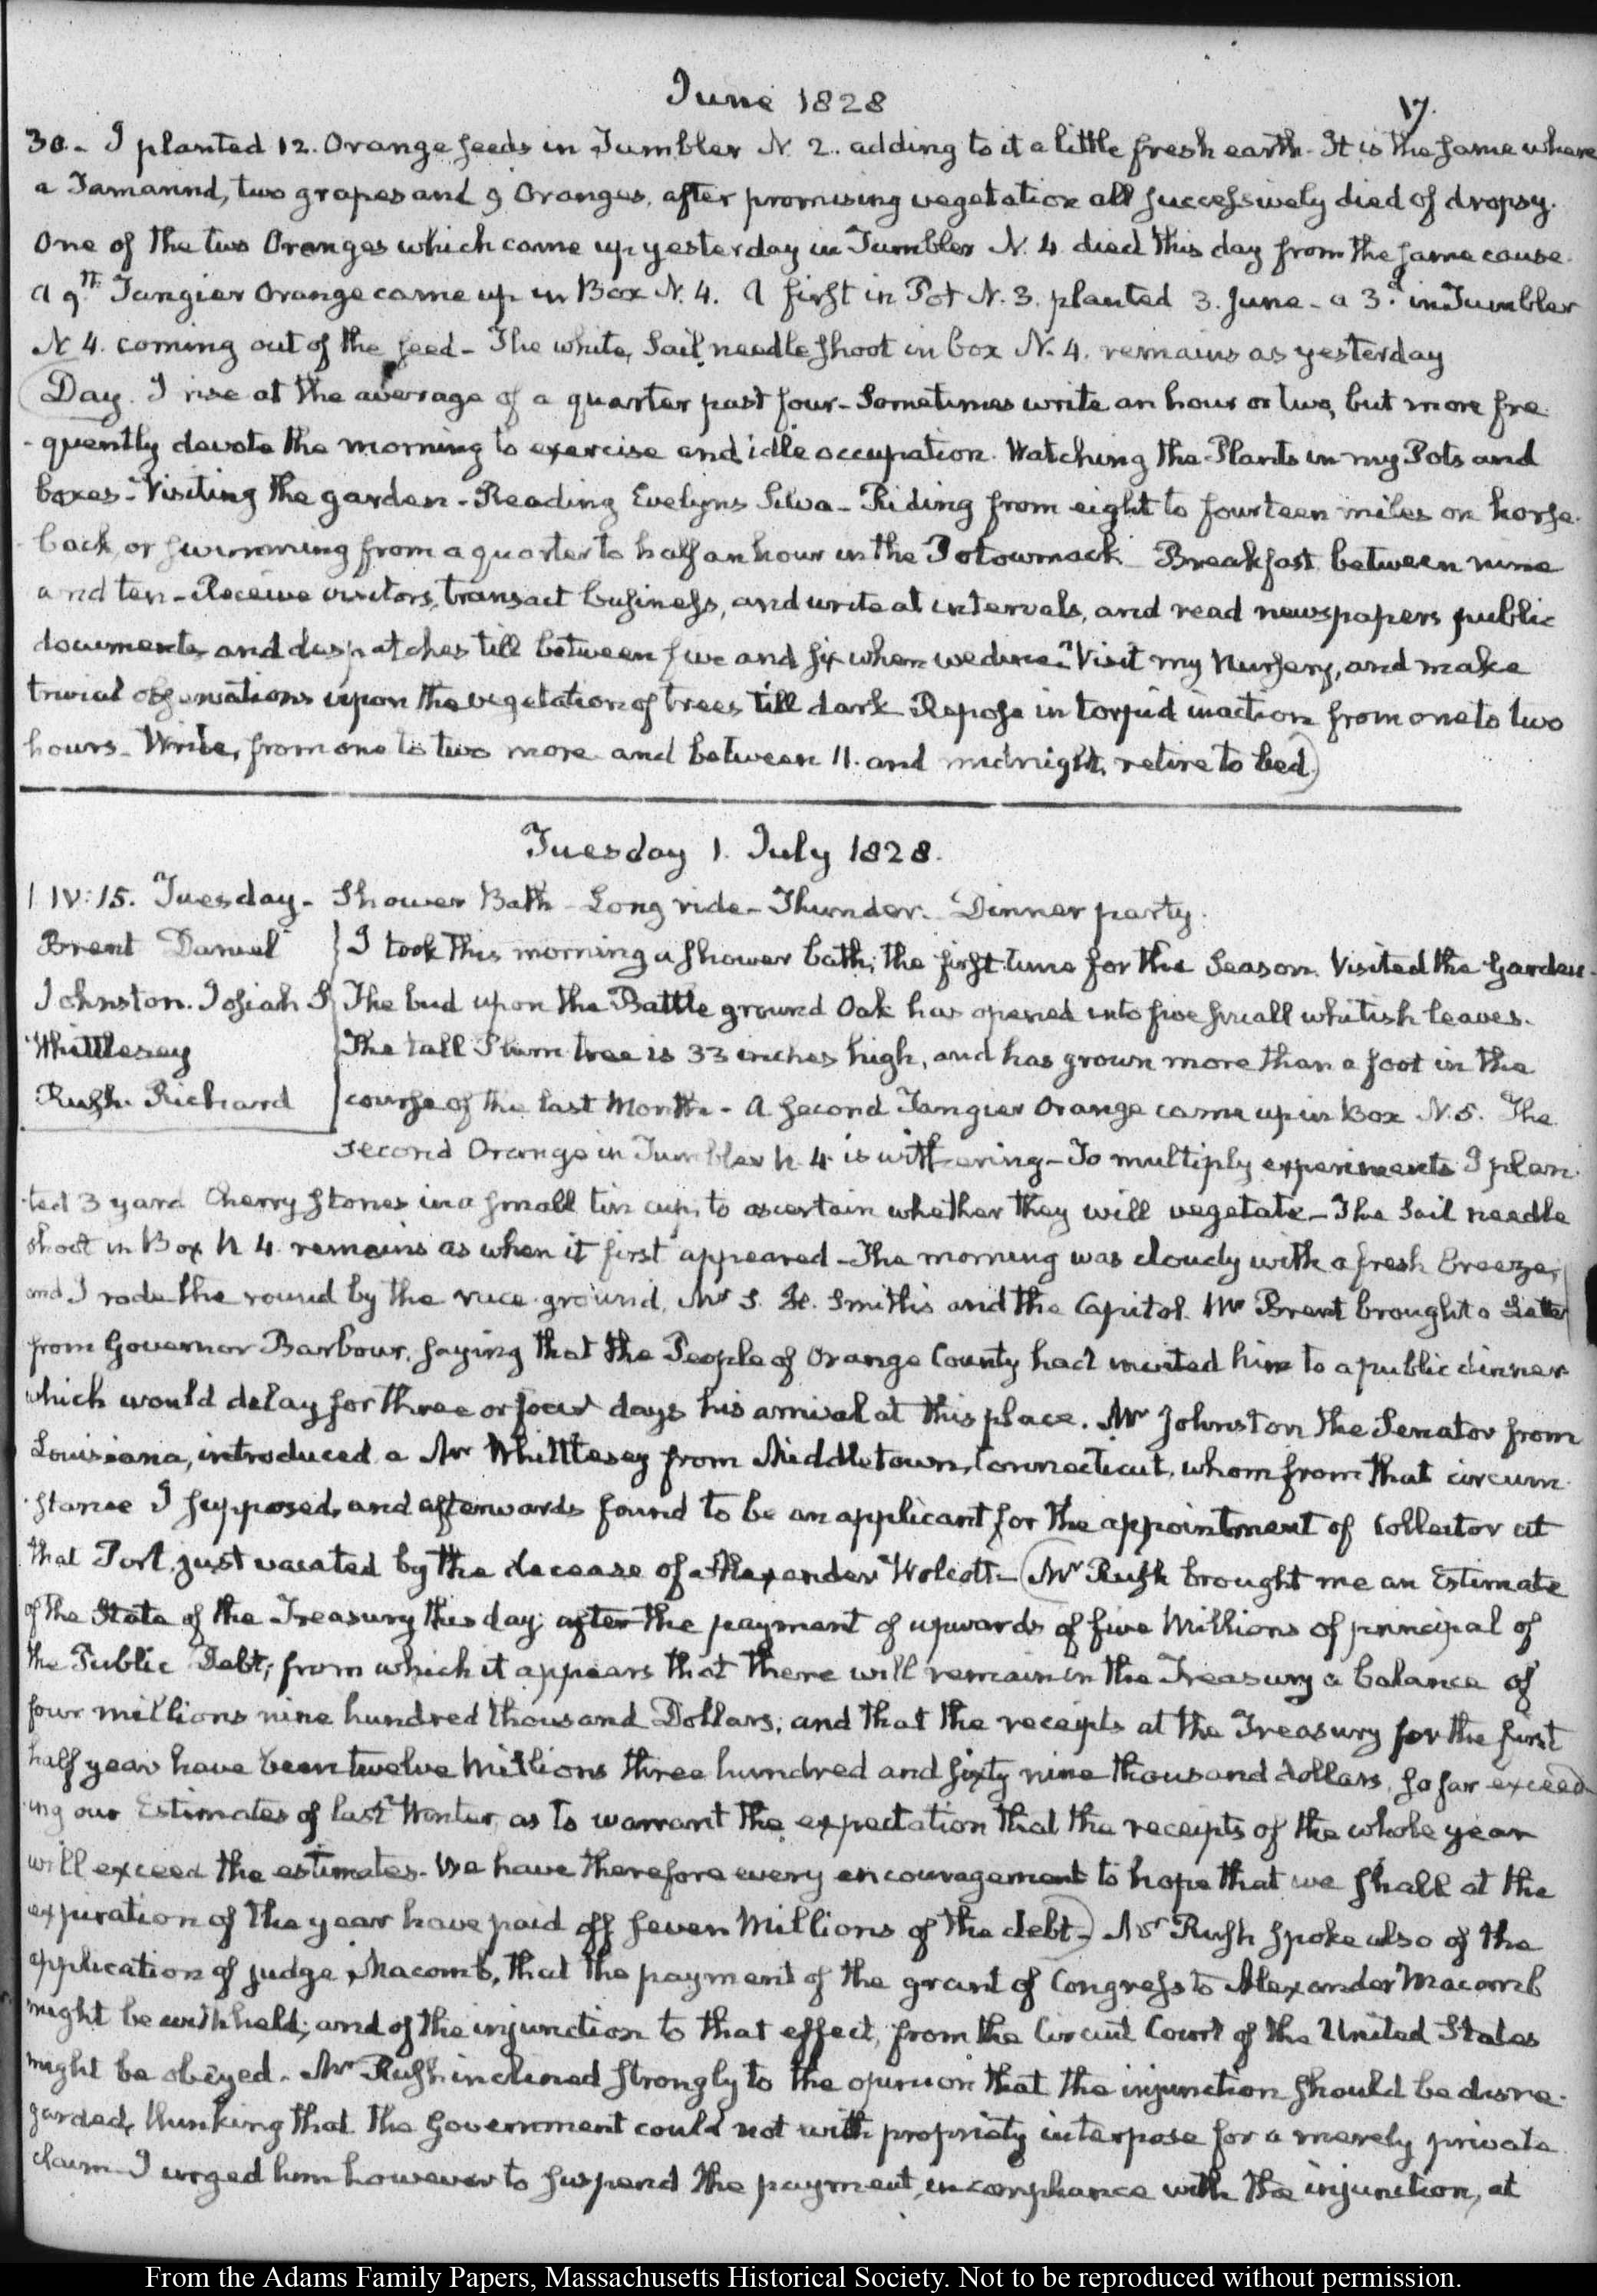 June 1828
17.
30 - I planted 12. Orange seeds in Tumbler N. 2. adding to it a little fresh earth - It is the same where
a Tamarind, two grapes and 9 Oranges, after promising vegetation all successively died of dropsy.
One of the two Oranges which came up yesterday in Tumbler N. 4 died this day from the same cause.
A 9th Tangier Orange came up in Box N. 4. A first in Pot N. 3. planted 3. June - a 3d in Tumbler
N 4. coming out of the seed - The white, Sail needle shoot in box N. 4. remains as yesterday
(Day. I rise at the average of a quarter past four - Sometimes write an hour or two, but more fre
-quently devote the morning to exercise and idle occupation. Watching the Plants in my Pots and
boxes - Visiting the garden - Reading Evelyns Silva - Riding from eight to fourteen miles on horse-
back, or swimming from a quarter to half an hour in the Potowmack - Breakfast between nine
and ten - Receive visitors, transact business, and write at intervals, and read newspapers public
documents and dispatches till between five and six when we dine - Visit my Nursery, and make
trivial observations upon the vegetation of trees till dark - Repose in torpid inaction from one to two
hours - Write, from one to two more and between 11. and midnight, retire to bed.)
Tuesday 1. July 1828.
1 IV: 15. Tuesday - Shower Bath - Long ride - Thunder - Dinner party.
Brent Daniel I took this morning a shower bath; the first time for the Season. Visited the Garden -
Johnston. Josiah S The bud upon the Battle ground Oak has opened into five small whitish leaves.
Whittlesey The tall Plum tree is 33 inches high, and has grown more than a foot in the
Rush Richard course of the last Month - A second Tangier Orange came up in Box N. 5. The
second Orange in Tumbler N. 4 is withering - To multiply experiments I plan-
ted 3 yard Cherry stones in a small tin cup, to ascertain whether they will vegetate - The Sail needle
shoot in Box N 4. remains as when it first appeared - The morning was cloudy with a fresh breeze,
and I rode the round by the race ground, Mr S. H. Smith's and the Capitol. Mr Brent brought a Letter
from Governor Barbour, saying that the People of Orange County had invited him to a public dinner
which would delay for three or four days his arrival at this place. Mr Johnston the Senator from
Louisiana, introduced a Mr Whittlesey from Middletown, Connecticut, whom from that circum-
stance I supposed, and afterwards found to be an applicant for the appointment of Collector at
that Port, just vacated by the decease of Alexander Wolcott - (Mr Rush brought me an Estimate
of the State of the Treasury this day; after the payment of upwards of five Millions of principal of
the Public Debt; from which it appears that there will remain in the Treasury a balance of
four millions nine hundred thousand Dollars; and that the receipts at the Treasury for the first
half year have been twelve Millions three hundred and sixty nine thousand dollars, so far exceed-
ing our Estimates of last Winter, as to warrant the expectation that the receipts of the whole year
will exceed the estimates. We have therefore every encouragement to hope that we shall at the
expiration of the year have paid off seven Millions of the debt -) Mr Rush spoke also of the
application of judge Macomb, that the payment of the grant of Congress to Alexander Macomb
might be withheld; and of the injunction to that effect, from the Circuit Court of the United States
might be obeyed. Mr Rush inclined strongly to the opinion that the injunction should be disre-
garded, thinking that the Government could not with propriety interpose for a merely private
claim - I urged him however to suspend the payment, in compliance with the injunction, at
From the Adams Family Papers, Massachusetts Historical Society. Not to be reproduced without permission.